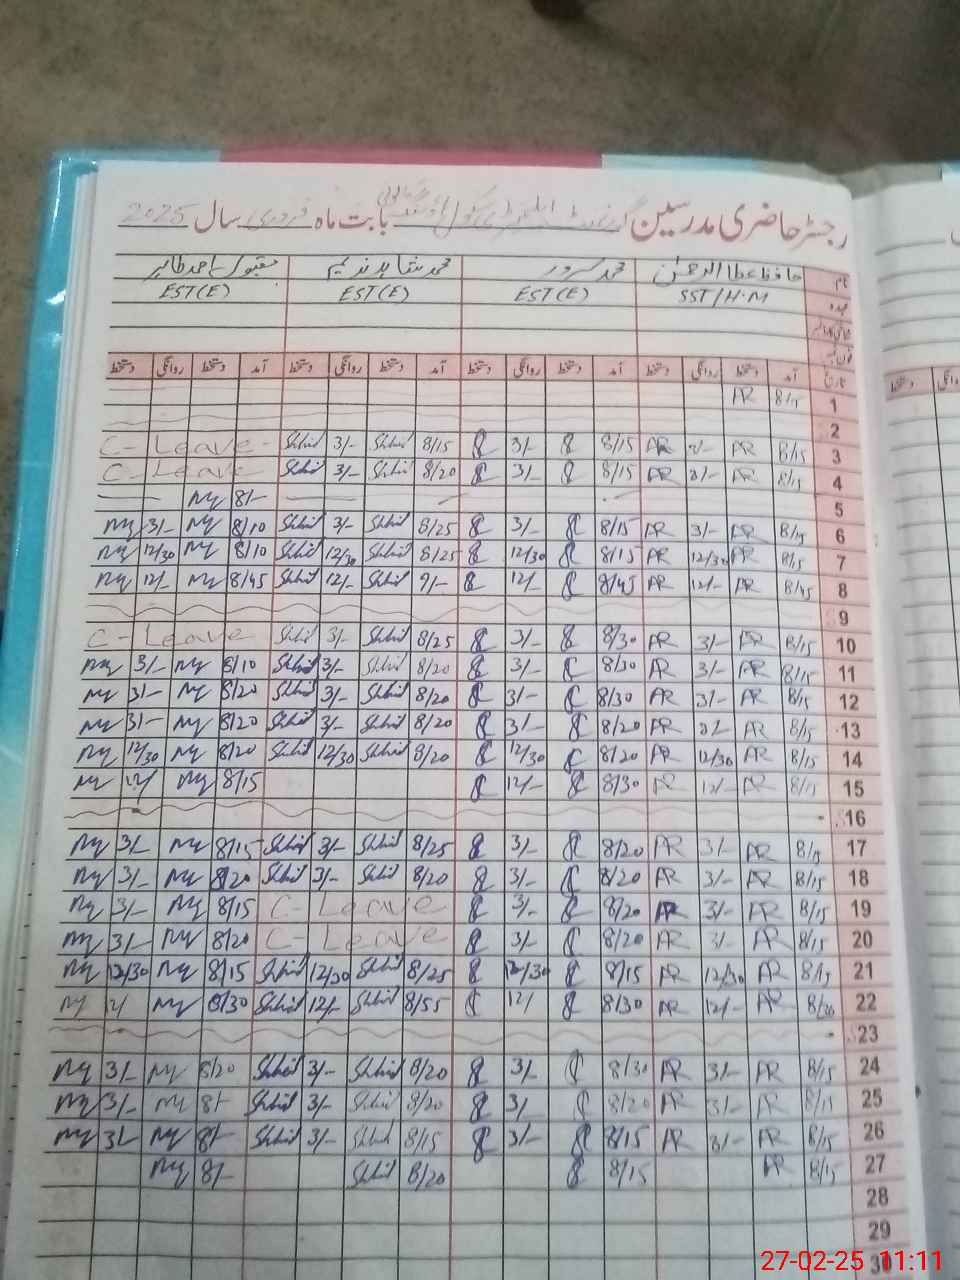 رجسٹر حاضری مدرسین گورنمنٹ ایلیمنٹری سکول بابت ماہ فروری سال 2025
نام حافظ عطا الرحمٰن محمد سرور محمد شاہد ندیم مقبول احمد طاہر
عہدہ SST/H.M EST(E) EST(E) EST(E)
تاریخ آمد دستخط روانگی دستخط آمد دستخط روانگی دستخط آمد دستخط روانگی دستخط آمد دستخط روانگی دستخط
1 8/15 AR
2
3 8/15 AR AR 8/15 3/- 8/15 Shhid 3/- Shhid C-Leave
4 8/15 AR AR 8/15 3/- 8/20 Shhid 3/- Shhid C-Leave
5 8/- My
6 8/15 AR 3/- AR 8/15 3/- 8/25 Shhid 3/- Shhid 8/10 My 3/- My
7 8/15 AR 12/30 AR 8/15 12/30 8/25 Shhid 12/30 Shhid 8/10 My 12/30 My
8 8/45 AR 12/- AR 8/45 12/- 9/- Shhid 12/- Shhid 8/45 My 12/- My
9
10 8/15 AR 3/- AR 8/30 3/- 8/25 Shhid 3/- Shhid C-Leave
11 8/15 AR 3/- AR 8/30 3/- 8/20 Shhid 3/- Shhid 8/10 My 3/- My
12 8/15 AR 3/- AR 8/30 3/- 8/20 Shhid 3/- Shhid 8/20 My 3/- My
13 8/15 AR 3/- AR 8/20 3/- 8/20 Shhid 3/- Shhid 8/20 My 3/- My
14 8/15 AR 12/30 AR 8/20 12/30 8/20 Shhid 12/30 Shhid 8/20 My 12/30 My
15 8/15 AR 12/- AR 8/30 12/- 8/15 My 12/ My
16
17 8/15 AR 3/- AR 8/20 3/- 8/25 Shhid 3/- Shhid 8/15 My 3/- My
18 8/15 AR 3/- AR 8/20 3/- 8/20 Shhid 3/- Shhid 8/20 My 3/- My
19 8/15 AR 3/- AR 8/20 3/- C-Leave 8/15 My 3/- My
20 8/15 AR 3/- AR 8/20 3/- C-Leave 8/20 My 3/- My
21 8/15 AR 12/30 AR 8/15 12/30 8/25 Shhid 12/30 Shhid 8/15 My 12/30 My
22 AR 12/- AR 8/30 12/ 8/55 Shhid 12/- Shhid 8/30 My 12/ My
23
24 8/15 AR 3/- AR 8/30 3/- 8/20 Shhid 3/- Shhid 8/20 My 3/- My
25 8/15 AR 3/- AR 8/20 3/ 8/20 Shhid 3/- Shhid 8/- My 3/- My
26 8/15 AR 3/- AR 8/15 3/- 8/15 Shhid 3/- Shhid 8/- My 3/- My
27 8/15 AR 8/15 8/20 Shhid 8/- My
28
29
30
27-02-25 11:11